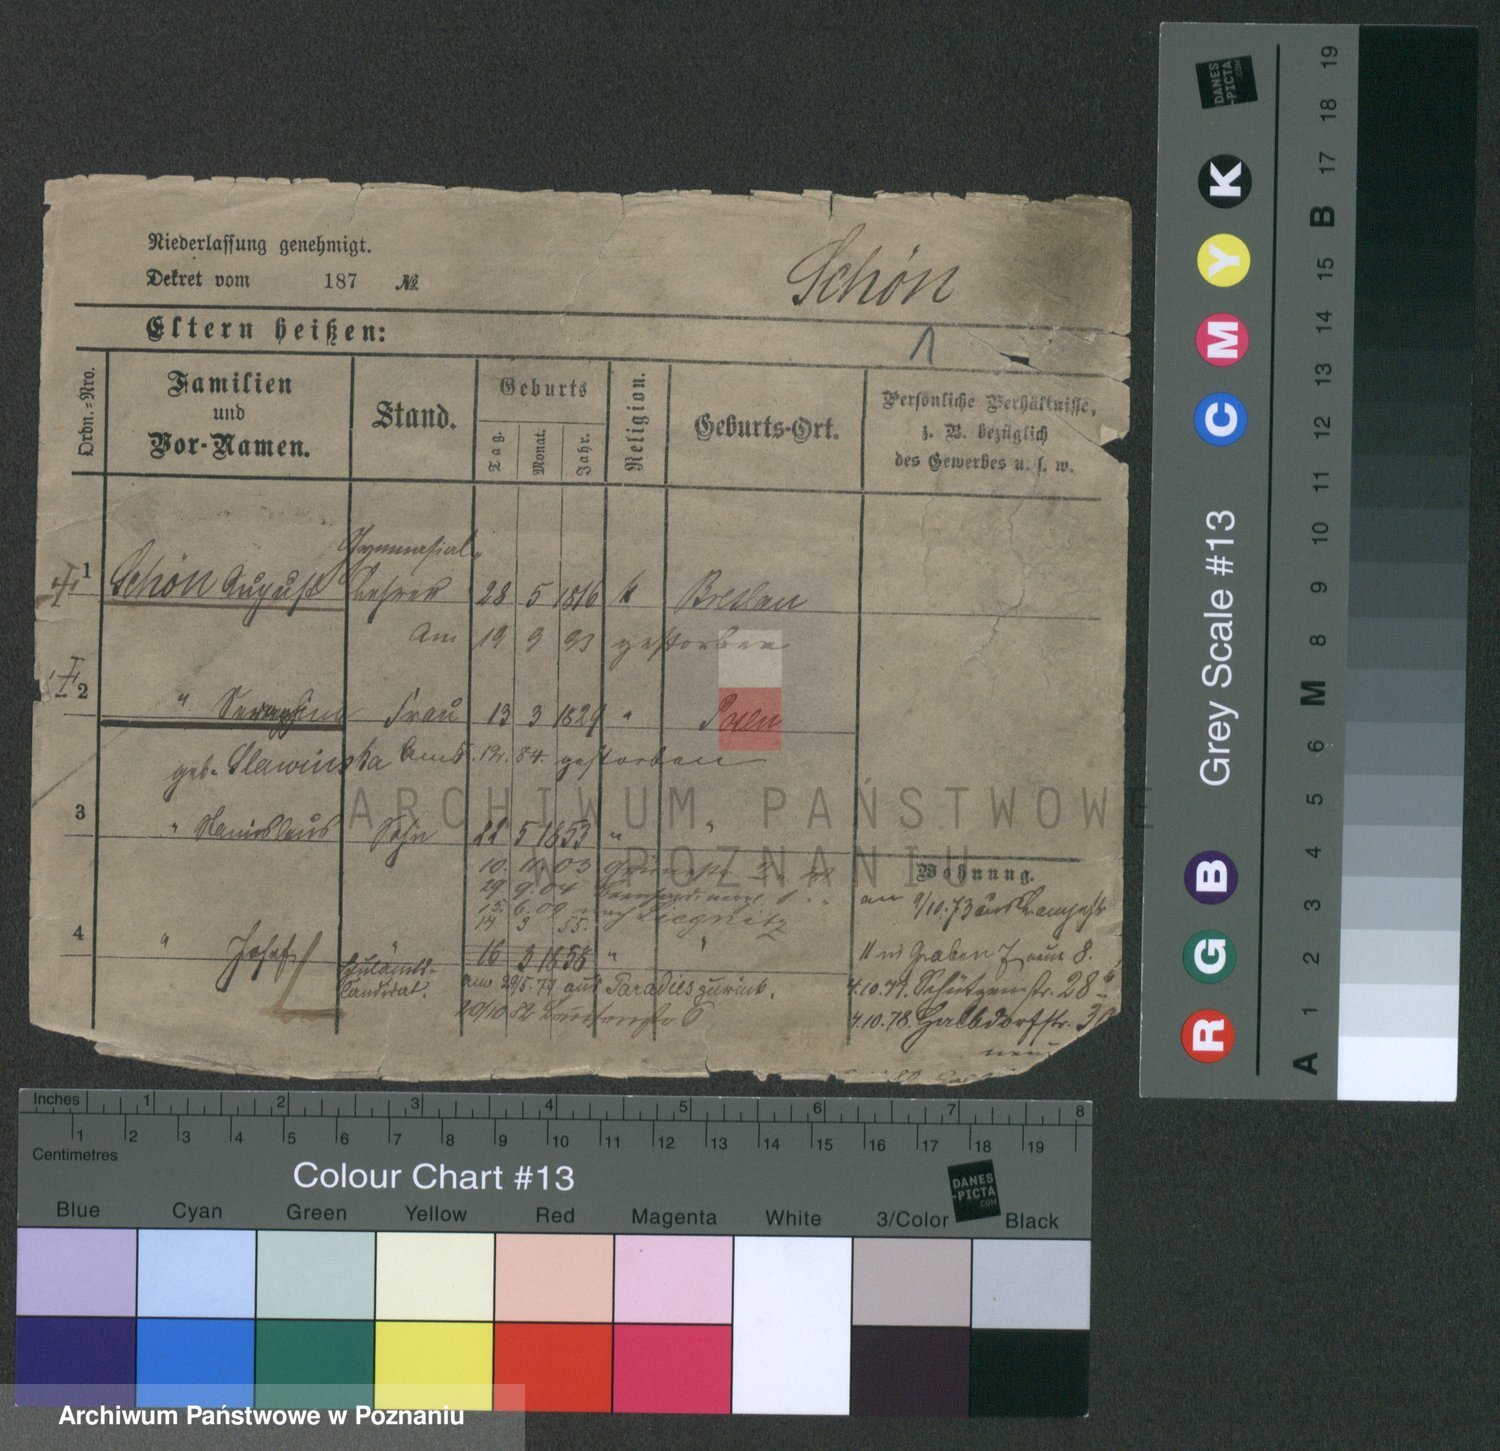 Niederlassung genehmigt.
Dekret vom 187 №
Schön
Eltern heißen:
1
Ordn.-Nro.
Familien
und
Vor-Namen.
Stand.
Geburts
Tag.
Monat.
Jahr.
Religion.
Geburts-Ort.
Persönliche Verhältnisse,
z. B. bezüglich
des Gewerbes u. s. w.
Gymnasial
1 Schön August Lehrer 28 5 1816 k Breslau
Am 19 9 93 gestorben
2 " Frau 13 3 1829 " Posen
geb. Slawinska Am 5. 12. 84. gestorben
3 " Stanislaus Sohn 22 5 1853 " "
Wohnung.
10. 03
29. 9. 04
15. 6. 09 nach Liegnitz
14 3 55.
4 " Josef 16 3 1856 " "
Candidat. am 29/5. 77. aus Paradies zurück.
11 Graben 7 neu 8.
4.10.77. Schützenstr. 28
4.10.78. Halbdorfstr.
neu
ARCHIWUM PAŃSTWOWE
W POZNANIU
DANES
-PICTA
.COM
K
Y
M
C
B
G
R
Grey Scale #13
A 1 2 3 4 5 6 M 8 9 10 11 12 13 14 15 B 17 18 19
Inches 1 2 3 4 5 6 7 8
1 2 3 4 5 6 7 8 9 10 11 12 13 14 15 16 17 18 19
Centimetres
Colour Chart #13
DANES
-PICTA
.COM
Blue Cyan Green Yellow Red Magenta White 3/Color Black
Archiwum Państwowe w Poznaniu